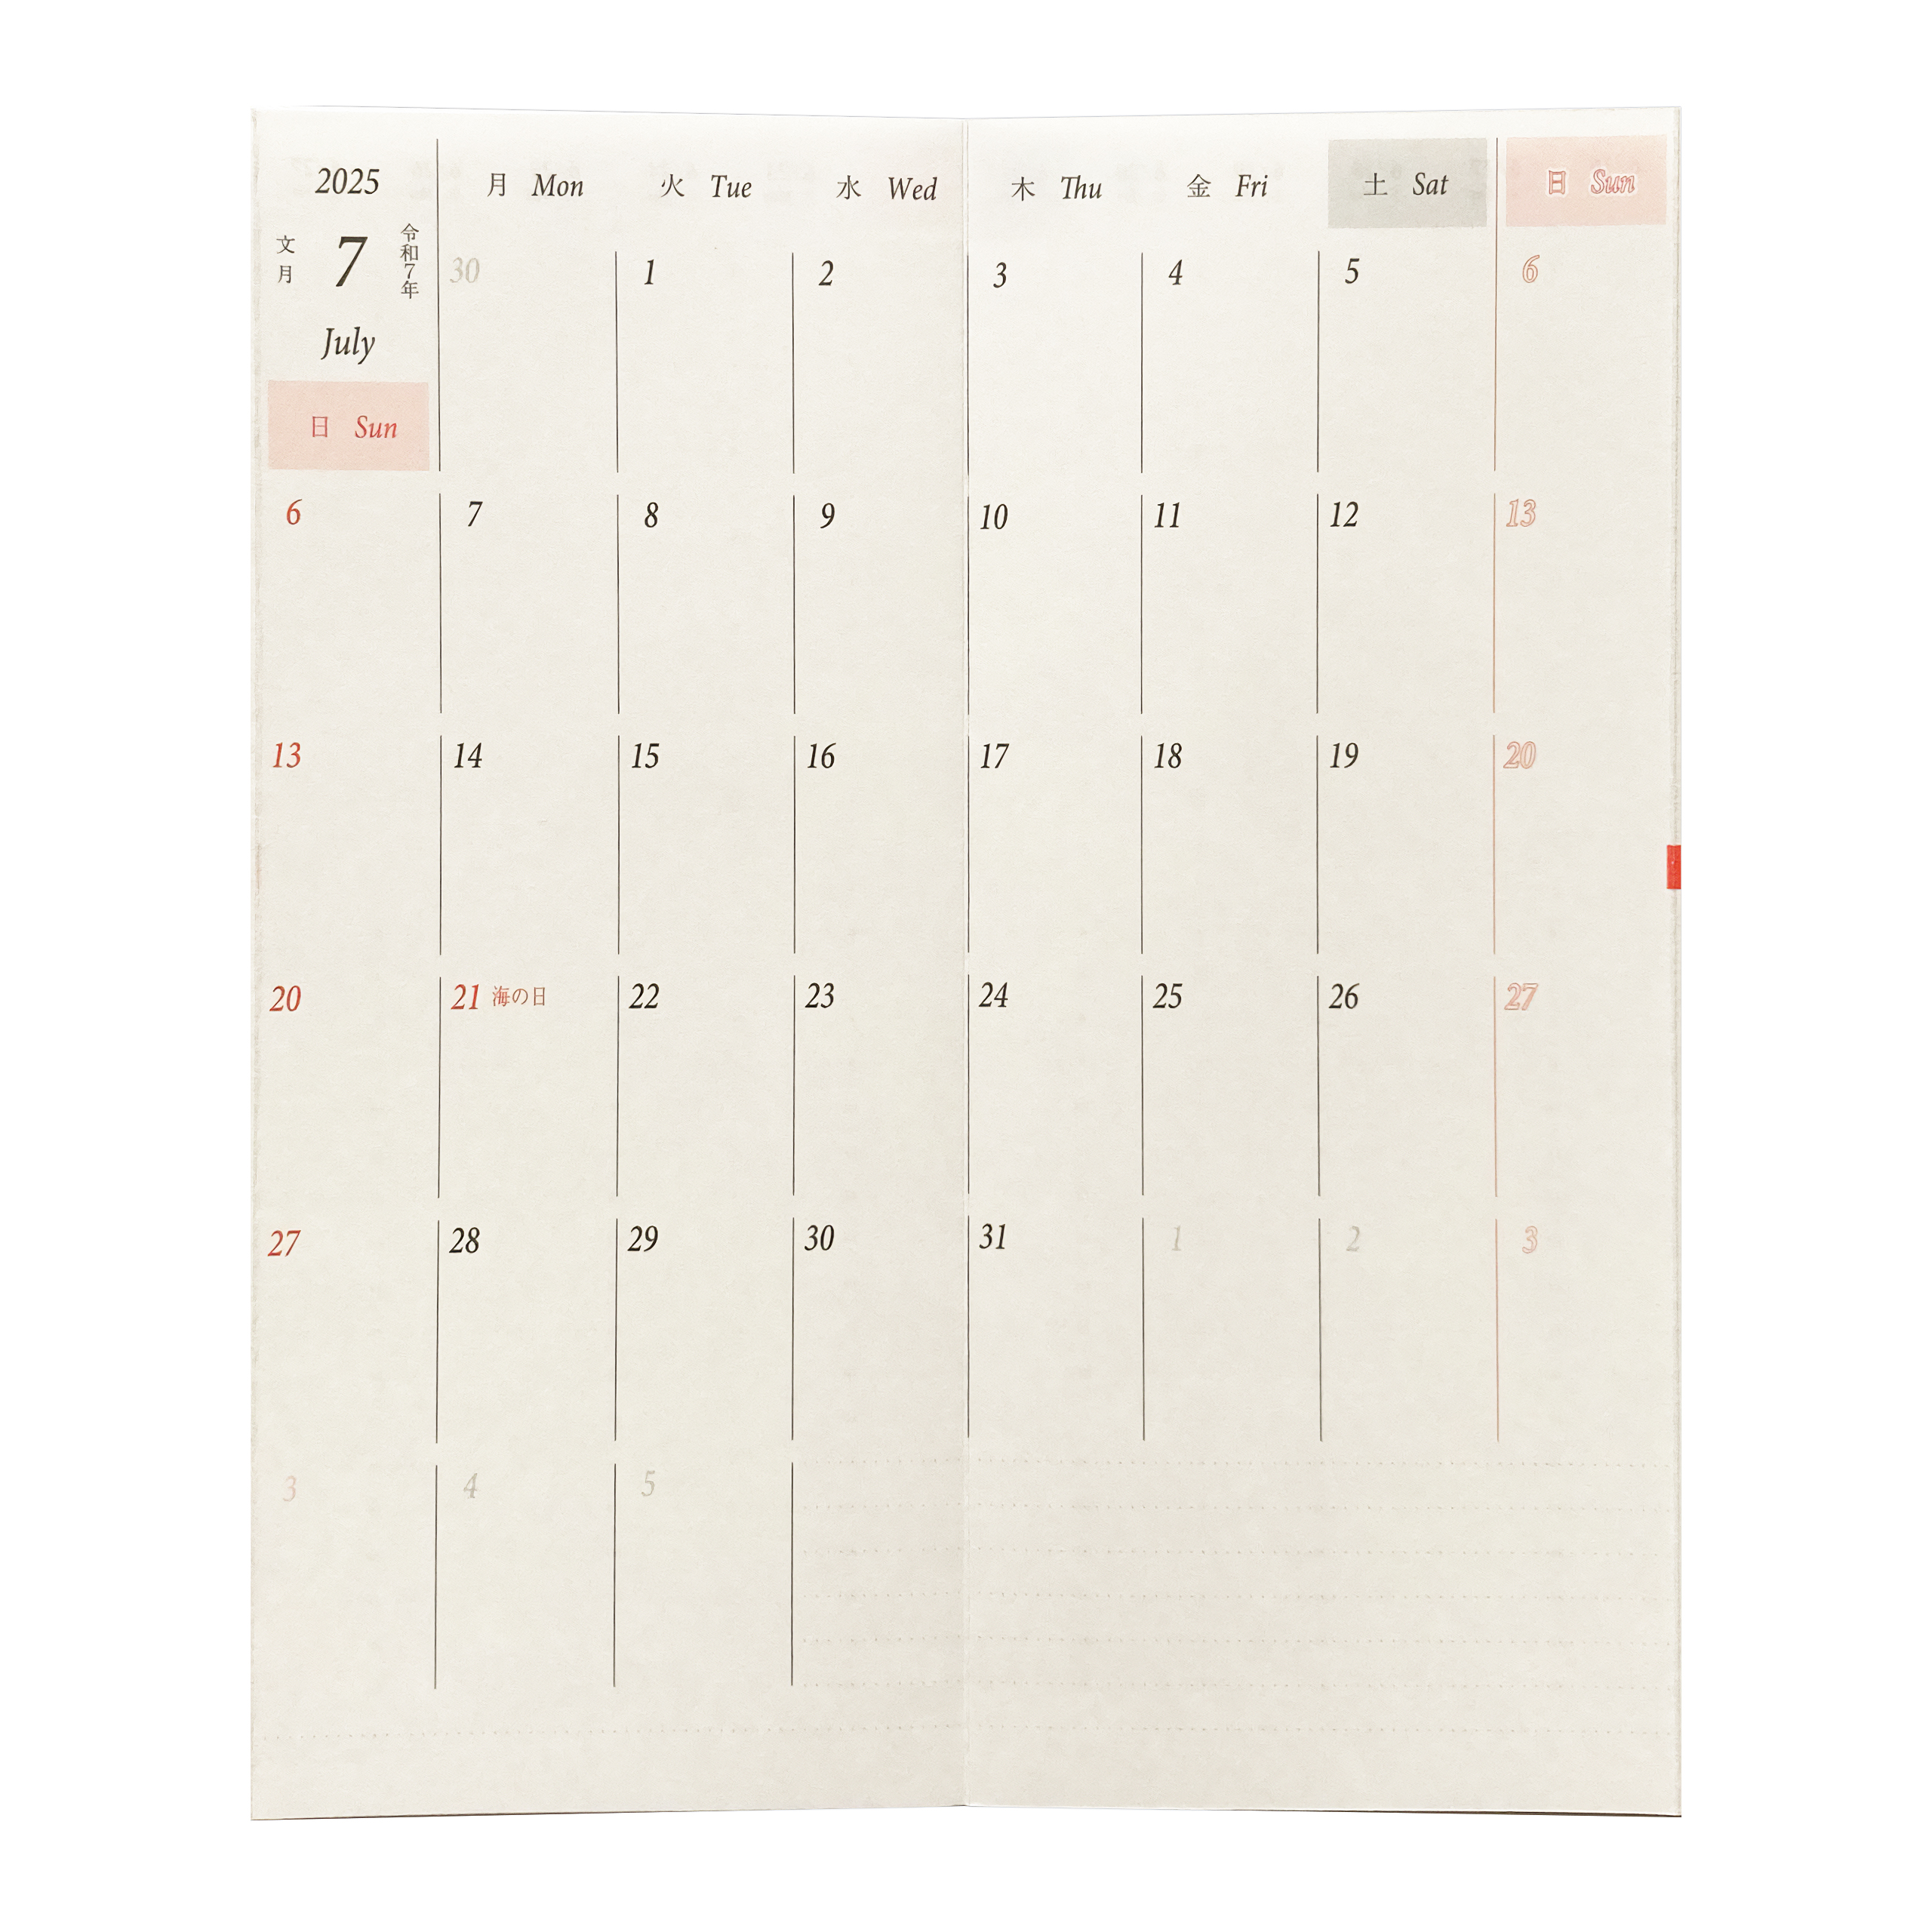 2025
文月 7 令和7年
July
日 Sun
月 Mon 火 Tue 水 Wed 木 Thu 金 Fri 土 Sat 日 Sun
30 1 2 3 4 5 6
6 7 8 9 10 11 12 13
13 14 15 16 17 18 19 20
20 21 海の日 22 23 24 25 26 27
27 28 29 30 31 1 2 3
3 4 5